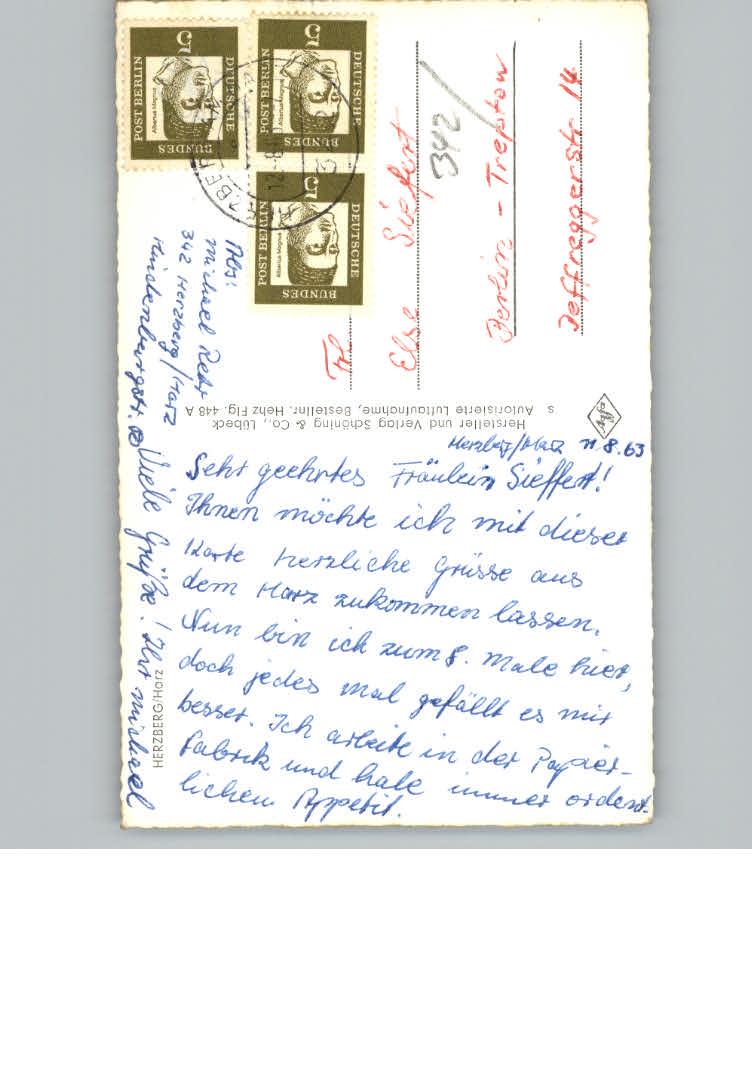 Herzberg/Harz 11.8.63
Sehr geehrtes Fräulein Sieffert!
Ihnen möchte ich mit dieser
Karte herzliche Grüsse aus
dem Harz zukommen lassen.
Nun bin ich zum 8. Male hier,
doch jedes Mal gefällt es mir
besser. Ich arbeite in der Papier-
fabrik und habe immer ordent-
lichen Appetit.
Viele Grüße! Ihr Michael
HERZBERG/Harz
Abs:
Michael
342 Herzberg/Harz
Hindenburgstr.
Hersteller und Verlag Schöning & Co., Lübeck
s Autorisierte Luftaufnahme, Bestellnr. Hehz Flg. 448 A
Frl
Else Sieffert
Berlin - Treptow
Jeffreggerstr 14
342
DEUTSCHE
BUNDES
POST BERLIN
Albertus Magnus
5
DEUTSCHE
BUNDES
POST BERLIN
Albertus Magnus
5
DEUTSCHE
BUNDES
POST BERLIN
Albertus Magnus
5